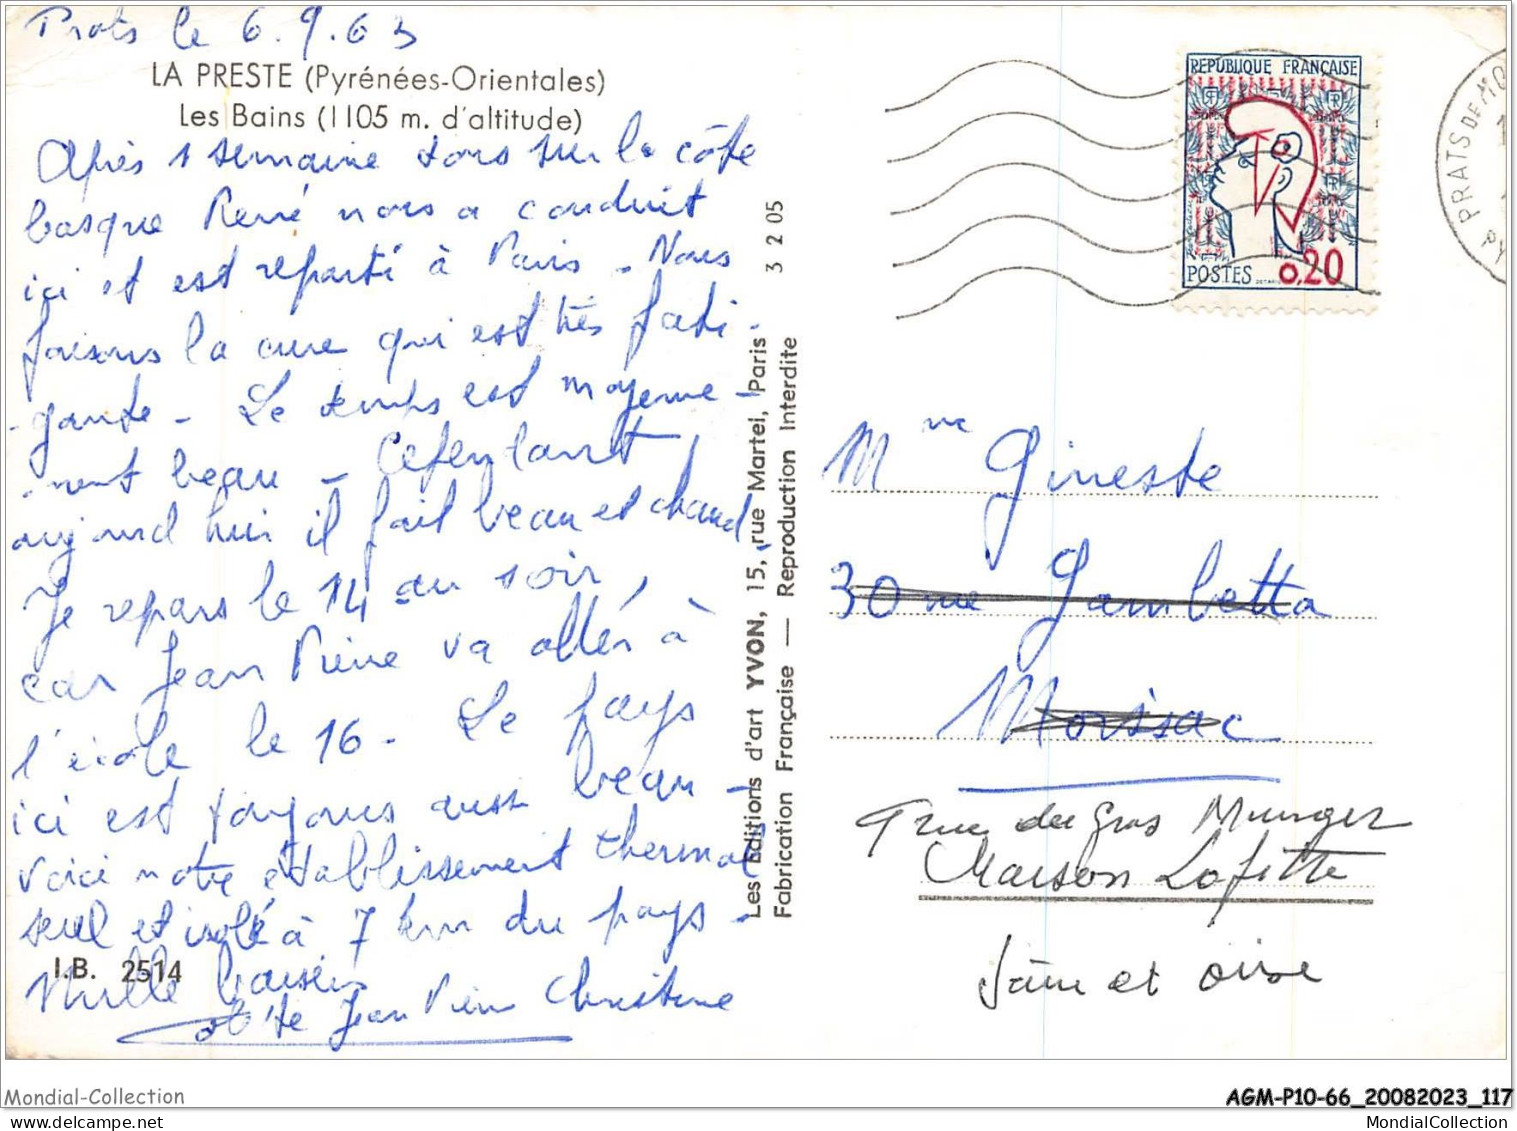 Prats le 6.9.63
LA PRESTE (Pyrénées-Orientales)
Les Bains (1105 m. d'altitude)
Après 1 semaine tous sur la côte
basque René nous a conduit
ici et est reparti à Paris - Nous
faisons la cure qui est très fati-
-gante - Le temps est moyenne-
-ment beau - Cependant
aujourd'hui il fait beau et chaud -
Je repars le 14 au soir,
car Jean Pierre va aller à
l'école le 16 - Le pays
ici est toujours aussi beau -
Voici notre établissement thermal
seul et isolé à 7 km du pays -
Mille baisers
Jean Pierre Christine
I.B. 2514
3 2 05
Les Editions d'art YVON, 15, rue Martel, Paris
Fabrication Française — Reproduction Interdite
REPUBLIQUE FRANÇAISE
POSTES 0,20
PRATS DE MO
PY
Mme Gineste
30 rue Gambetta
Moissac
9 rue du Gros Murger
Maison Lafitte
Seine et Oise
Mondial-Collection
AGM-P10-66_20082023_117
MondialCollection